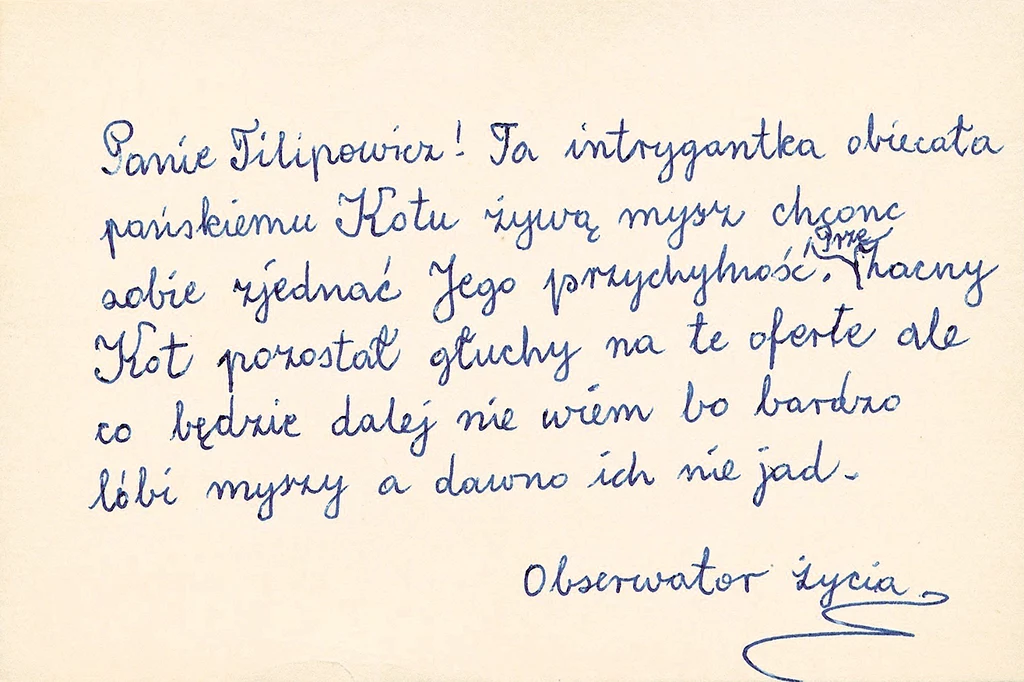 Panie Filipowicz! Ta intrygantka obiecała
pańskiemu Kotu żywą mysz chconc
sobie zjednać Jego przychylność. Przezacny
Kot pozostał głuchy na te oferte ale
co będzie dalej nie wiem bo bardzo
lóbi myszy a dawno ich nie jad.
Obserwator życia.